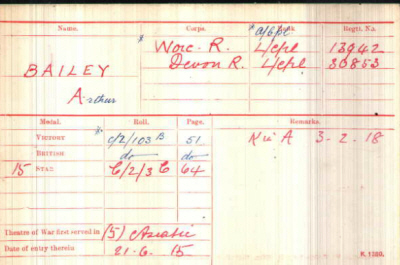 Name. Corps. Rank Regtl. No.
* * A/Cpl
BAILEY Worc. R. L/Cpl 13942
Devon R. L/Cpl 30853
Arthur
Medal. Roll. Page. Remarks.
VICTORY * C/2/103 B 51 K in A 3-2-18
BRITISH do do
15 STAR C/2/3 C 64
Theatre of War first served in (5) Asiatic
Date of entry therein 21-6-15
K. 1380.